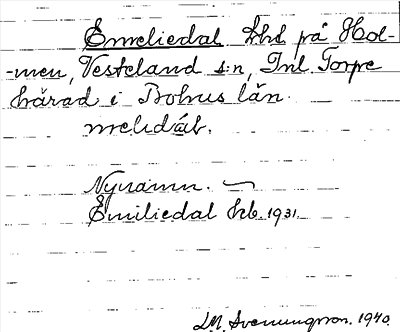 Emeliedal lht på Hol-
-men, Vesteland s:n, Inl. Torpe
härad i Bohus län.
melidal.
Nynamn. —
Emiliedal kb. 1931.
LM. Svenungsson. 1940.